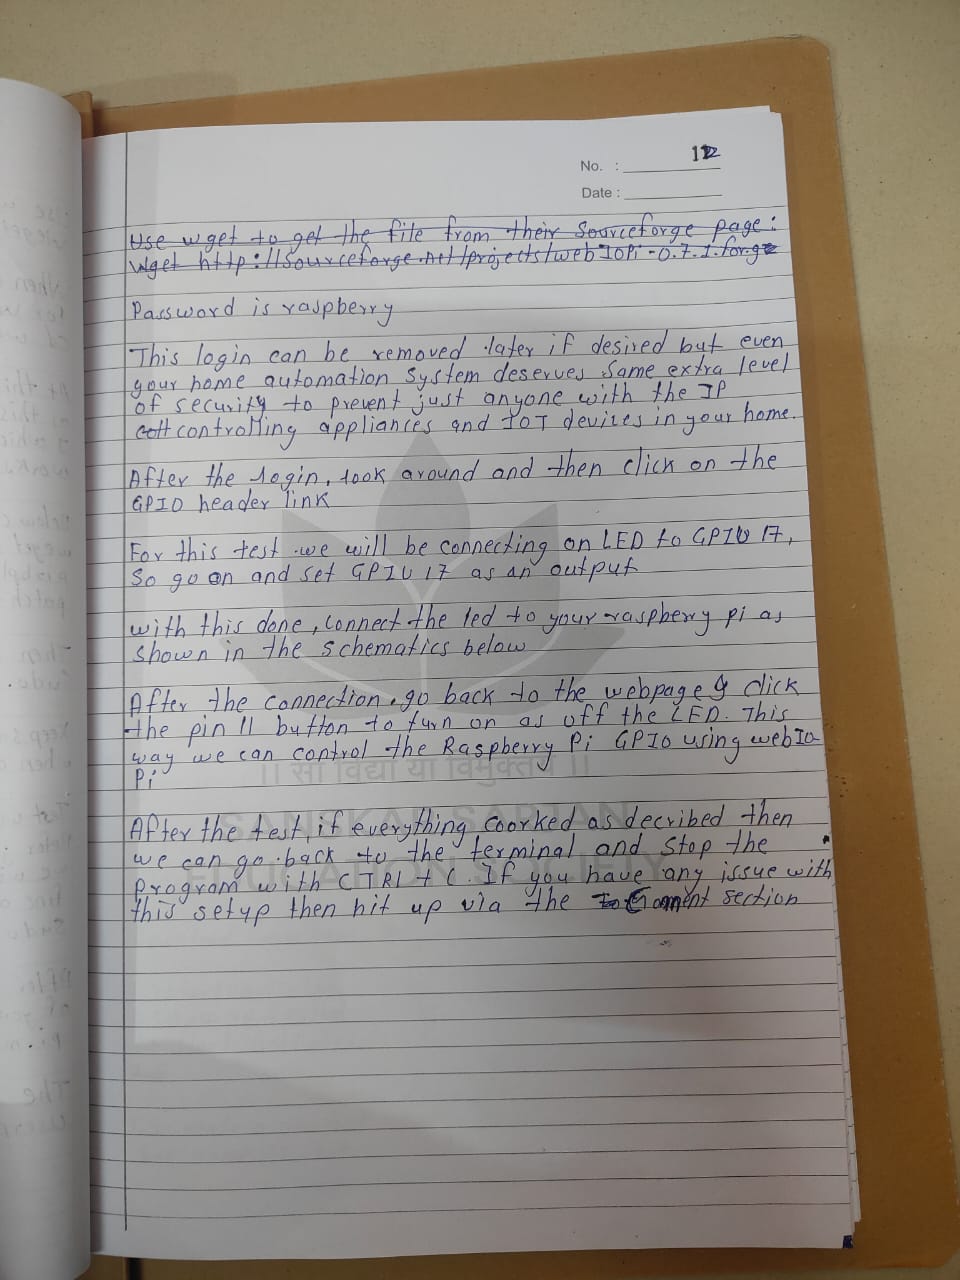 No. : 112
Date :
Use wget to get the file from their Sourceforge page:
Wget http://Sourceforge.net/projects/webIOPi-0.7.1.forgz
Password is raspberry
This login can be removed later if desired but even
your home automation system deserves same extra level
of security to prevent just anyone with the IP
controlling appliances and IOT devices in your home.
After the login, look around and then click on the
GPIO header link
For this test we will be connecting on LED to GPIO 17,
So go on and set GPIO 17 as an output
with this done, connect the led to your raspberry pi as
shown in the schematics below
After the connection, go back to the webpage & click
the pin 11 button to turn on as off the LED. This
way we can control the Raspberry Pi GPIO using webIo
Pi
|| सा विद्या या विमुक्तये ||
After the test, if everything coorked as decribed then
SANSKAR SARJAN
we can go back to the terminal and stop the
EDUCATION SOCIETY
Program with CTRL + C. If you have any issue with
this setup then hit up via the Comment section